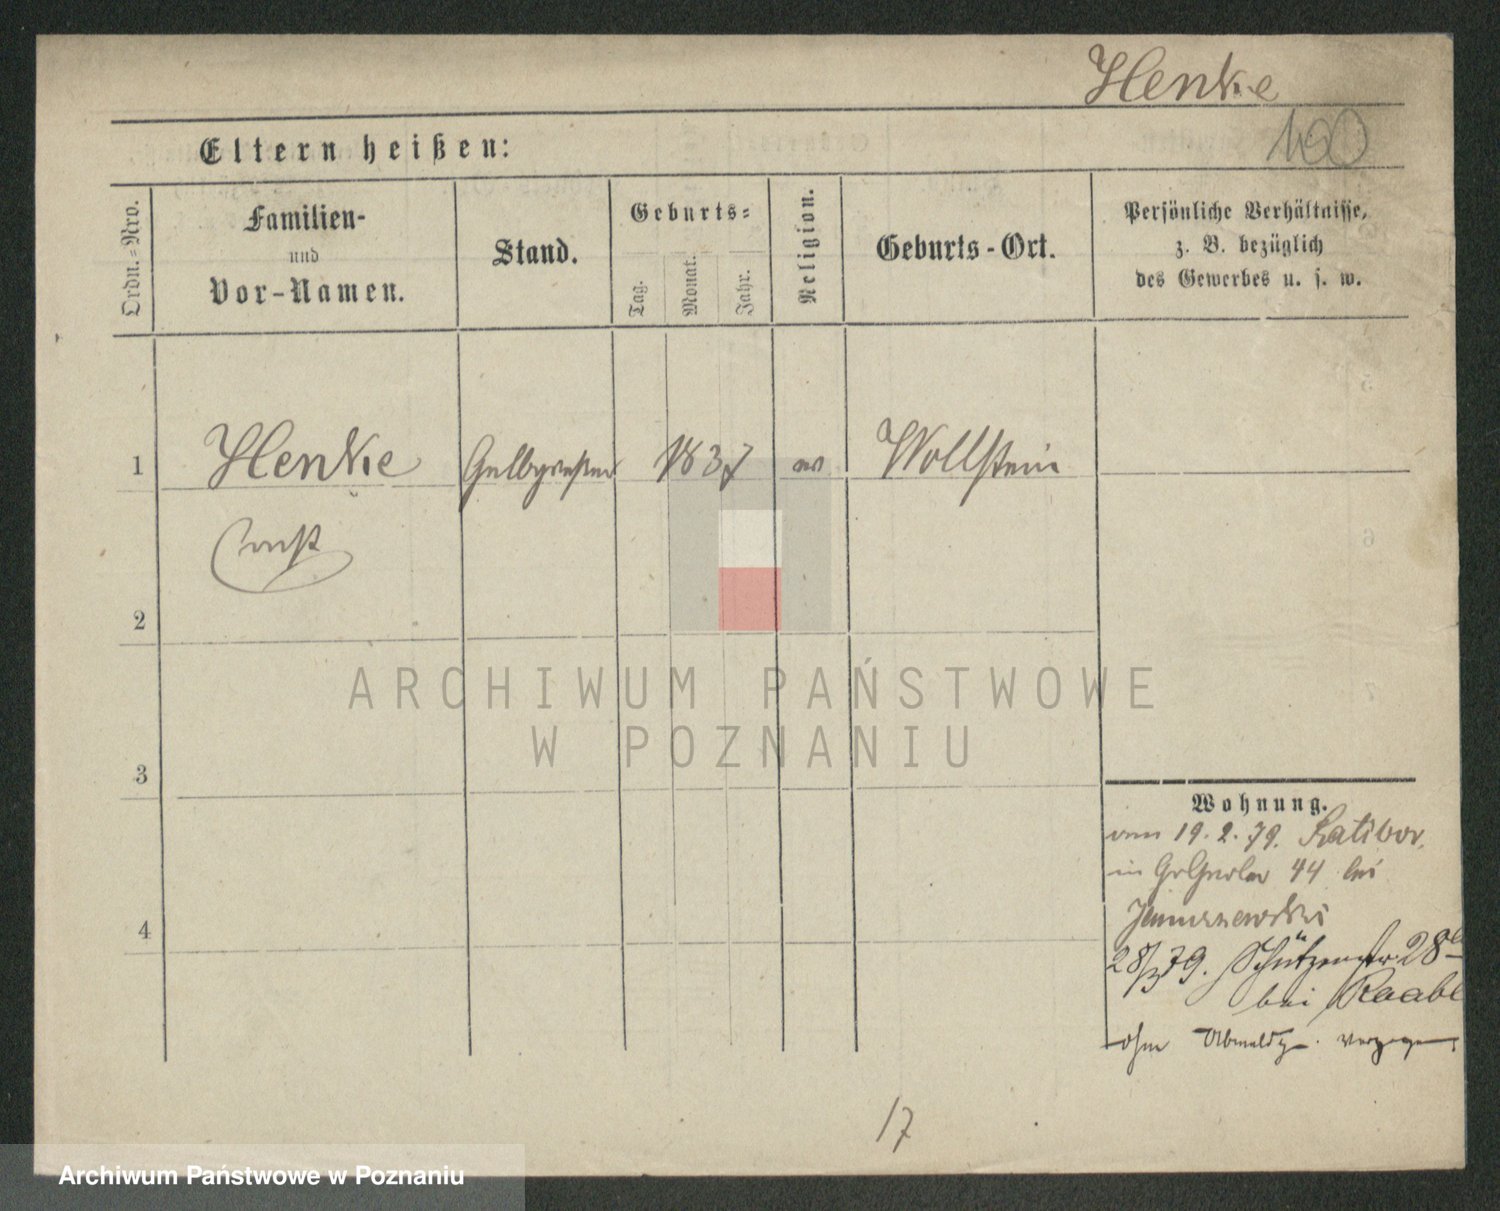 Henke
100
Eltern heißen:
Ordn.-Nro.
Familien-
und
Vor-Namen.
Stand.
Geburts-
Tag.
Monat.
Jahr.
Religion.
Geburts-Ort.
Persönliche Verhältnisse,
z. B. bezüglich
des Gewerbes u. s. w.
1
Henke
1837
ev
Wollstein
Ernst
2
ARCHIWUM PAŃSTWOWE
W POZNANIU
3
Wohnung.
vom 19. 2. 79. Ratibor,
in 44 bei
4
28/3 79. Schützenstr 28
bei Raabe
ohne Abmeldg. verzogen
17
Archiwum Państwowe w Poznaniu